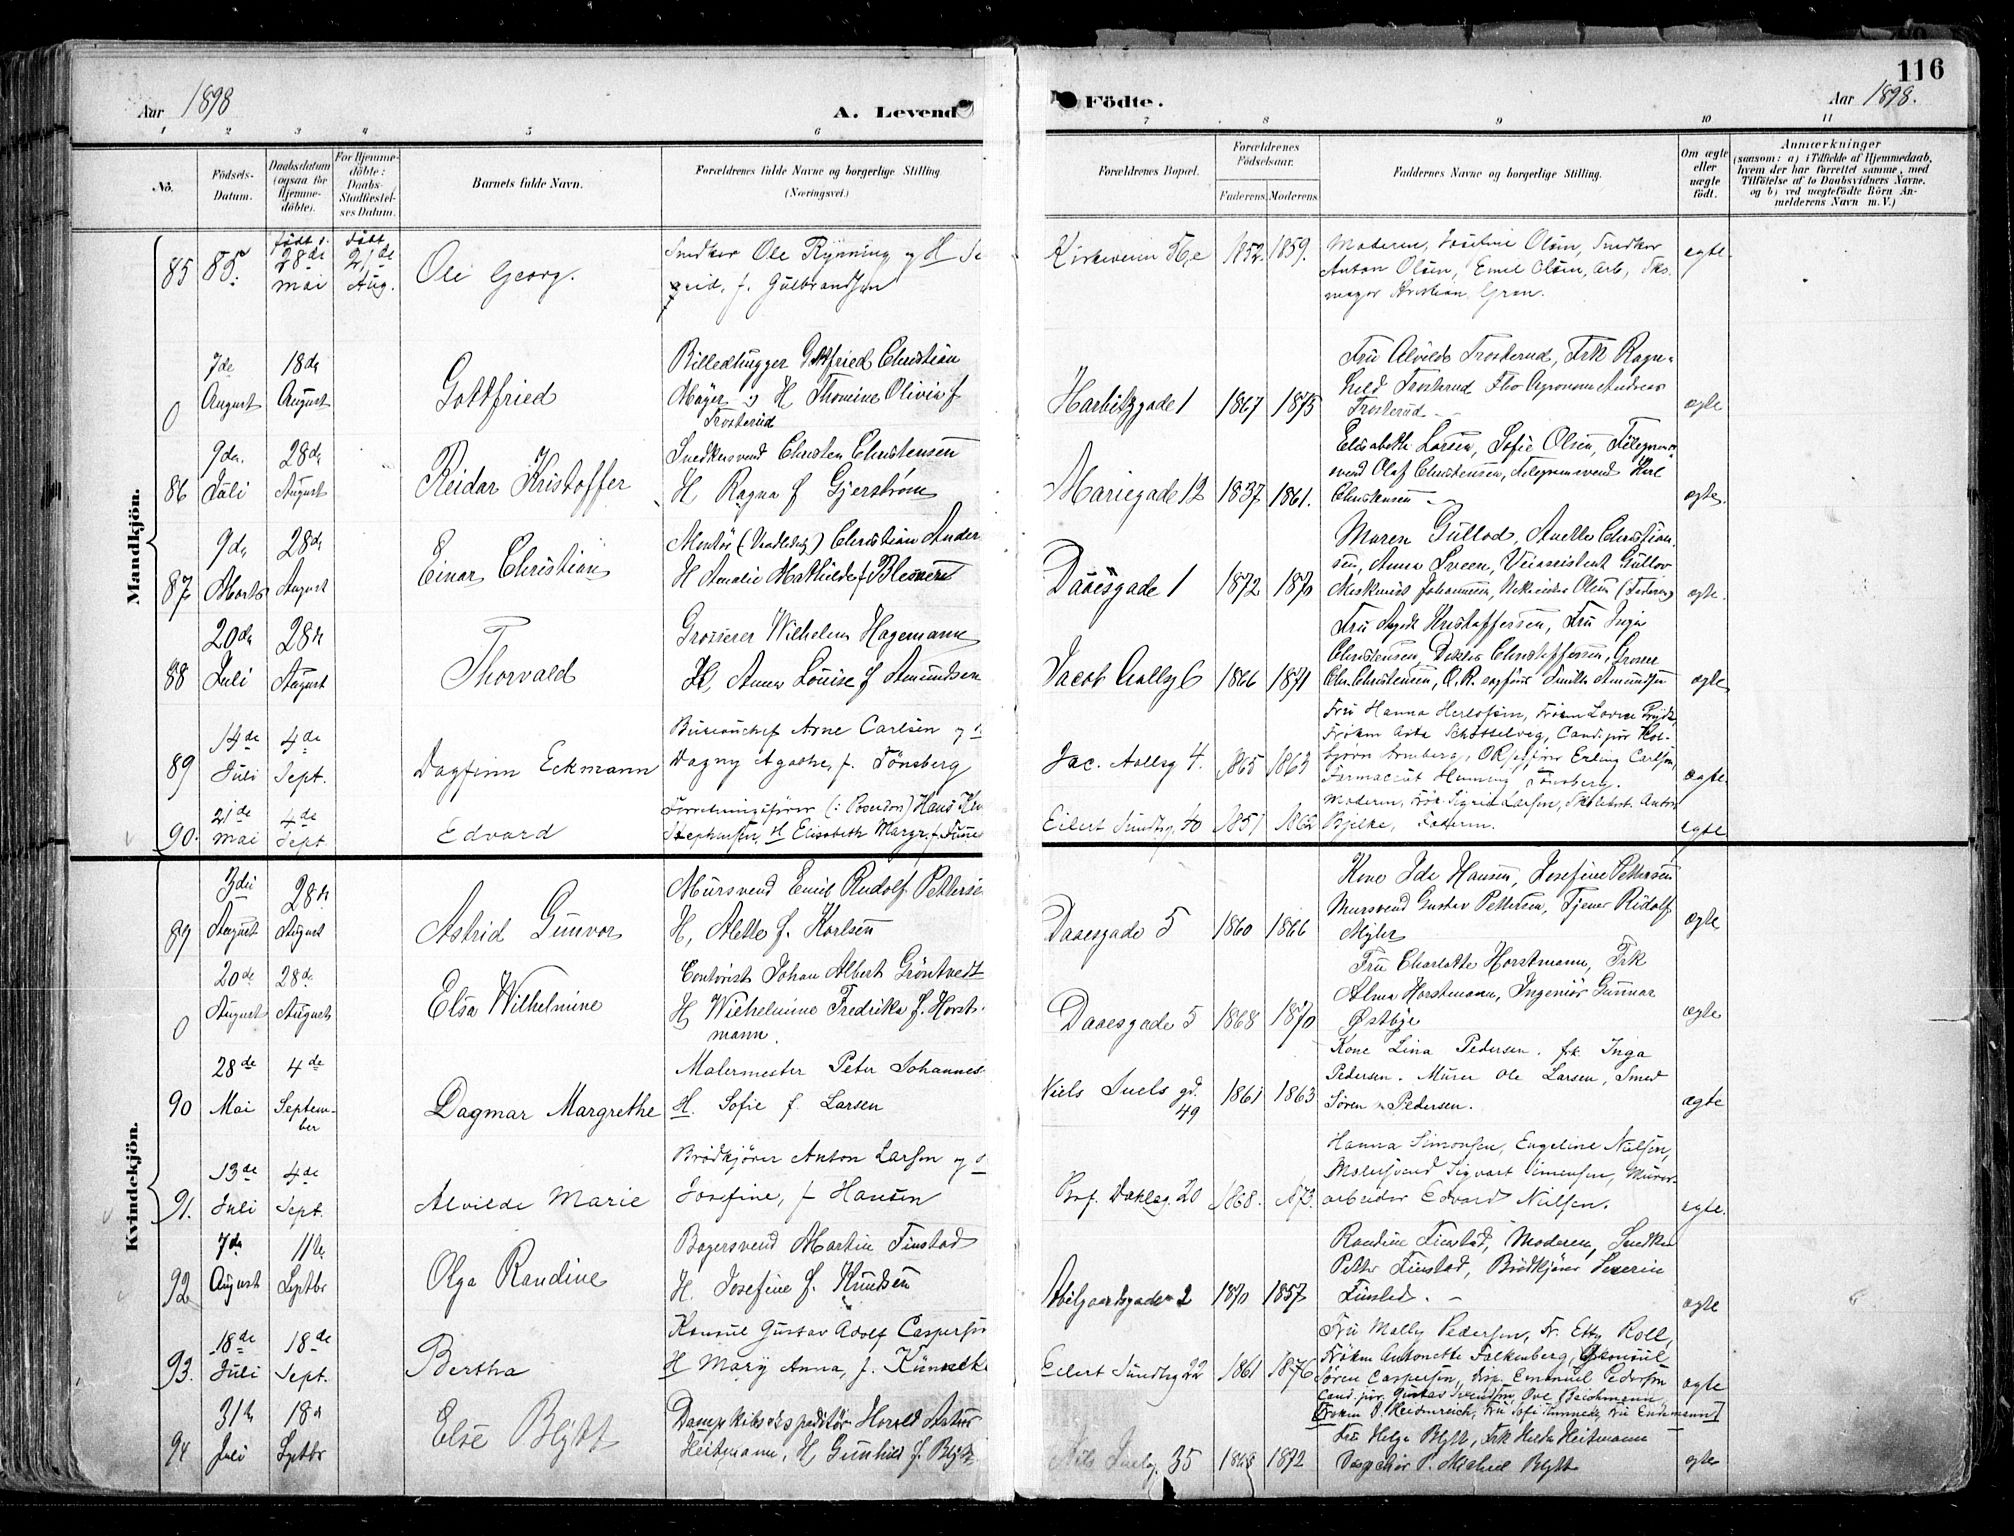 116
Aar 1898
A. Levende
Födte.
Aar 1898.
1 2 3 4 5 6 7 8 9 10 11
No.
Födsels-
Datum.
Daabsdatum
(ogsaa for
Hjemme-
döbte).
For Hjemme-
döbte:
Daabs-
Stadfæstel-
ses Datum.
Barnets fulde Navn.
Forældrenes fulde Navne og borgerlige Stilling
(Næringsvei.)
Forældrenes Bopæl.
Forældrenes
Födselsaar.
Faderens Moderens
Faddernes Navne og borgerlige Stilling.
Om ægte
eller
uægte
födt.
Anmærkninger
(saasom: a) i Tilfælde af Hjemmedaab,
hvem der har forrettet samme, med
Tilföielse af to Daabsvidners Navne,
og b) ved uægtefödte Börn An-
melderens Navn m. V.)
Mandkjön.
85 85. født 28de mai døbt 21de Aug.
Ole Georg.
Snedker Ole Rynning og H
f. Gulbrandsen
Kirkeveien 56,c 1852. 1859.
Moderen, Josefine Olsen, Snedker
Anton Olsen, Emil Olsen, arb, Sko-
mager Kristian Gran.
egte.
0 7de August 18de August
Gottfried
Billedhugger Gottfried Christian
Mayer og H Thomine Olivia f
Trosterud
Harbitzgade 1 1867 1875
Fru Alvilde Trosterud, Frk Ragn-
hild Trosterud Agronom Andreas
Trosterud
ægte
86 9de Juli 28de August
Reidar Kristoffer
Snedkersvend Christen Christensen
H Ragna f Gjerstrøm
Mariegade 12 1837 1861.
Elisabeth Larsen, Sofie Olsen,
svend Olaf Christensen, Karl
Christensen
ægte.
87 9de Marts 28de August
Einar Christian
Montør Christian Ander
H Amalie Mathilde f
Daaesgade 1 1872 1870
Maren Gullod, Anette Christian-
sen, Anna Sveen, Gullov
Maskinist Johannesen, Olsen
ægte.
88 20de Juli 28de August
Thorvald
Grosserer Wilhelm Hagemann
H, Anna Louise f Amundsen
Jacob Aallsg 6 1866 1871
Fru Kristoffersen, Fru Inga
Christensen, Christoffersen, Grosser
Chr. Christensen, O. R. sagfører Amundsen
ægte
89 14de Juli 4de Sept.
Dagfinn Eckmann
Bureauchef Arne Carlsen og
Dagny Agathe, f. Tönsberg
Jac. Aallsg 4. 1865 1863
Fru Hanna Herlofsen,
Frøken Schøttelvig, Cand. jur Kol-
bjørn Erling Carlsen,
Farmaceut Henning Tönsberg.
ægte.
90. 21de mai 4de Sept
Edvard
Forretningsfører Hans
Stephensen, H Elisabeth Margr. f.
Eilert Sundtsg. 40 1857 1862
Moderen, Frk. Sigrid Larsen, Anton
Bjelke, Faderen.
egte
Kvindekjön.
89 3die August 28de August
Astrid Gunvor
Mursvend Emil Rudolf Petterse
H, Alette f. Karlsen
Daaesgade 5 1860 1866
Kone Ida Hansen, Josefine Pettersen
Mursvend Gustav Pettersen, Tjener Rudolf
Myler
ægte
0 20de August 28de August
Elsa Wilhelmine
Contorist Johan Albert Gröntvedt
H Wilhelmine Fredrikke f. Horst-
mann.
Daaesgade 5 1868 1870
Fru Charlotte Horstmann, Frk
Alma Horstmann, Ingeniør Gunnar
Østbye
ægte
90 28de Mai 4de September
Dagmar Margrethe
Malermester Peter Johannes
H. Sofie f. Larsen
Niels Juels gd. 49 1861 1863
Kone Lina Pedersen. frk. Inga
Pedersen. Murer Ole Larsen, Smed
Søren Pedersen.
ægte
91. 13de Juli 4de Sept.
Alvilde Marie
Brödkjører Anton Larsen og
Josefine, f Hansen
Prof. Dahlsg. 20 1868. 1873.
Hanna Simonsen, Engeline Nielsen,
Malersvend Sigvart Simensen, Murer-
arbeider Edvard Nielsen.
egte.
92 7de August 11te Septbr
Olga Randine
Bagersvend Martin Finstad
H. Josefine f. Knudsen
Abilgaardsgade 2 1870 1857
Randine Finstad, Moderen, Snedker
Petter Finstad, Brödkjører Severin
Finstad.
ægte
93. 18de Juli 18de Sept.
Bertha
Konsul Gustav Adolf Caspersen
H Mary Anna, f.
Eilert Sundtsg 22 1861 1876
Fru Molly Pedersen, Fr. Etty Roll,
Frøken Antonette Falkenberg,
Søren Caspersen, Emanuel Pedersen
Cand. jur. Gustav Svendsen, Ove
Frøken Heidenreich, Fru Sofie
ægte
94 31te Juli 18de Septbr
Else Blytt
Dampskibsexpeditør Harald Astrup
Heitmann, H Gunhild f. Blytt
Niels Juelsg. 35 1868 1872
Fru Helga Blytt, Frk Hilda Heitmann
P. Michael Blytt
ægte